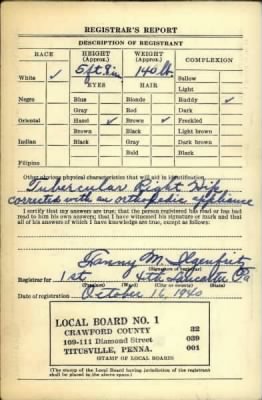 REGISTRAR'S REPORT
DESCRIPTION OF REGISTRANT
RACE HEIGHT (Approx.) WEIGHT (Approx.) COMPLEXION
White ✓ 5 ft 8 in 140 lb Sallow
EYES HAIR Light
Negro Blue Blonde Ruddy ✓
Gray Red Dark
Oriental Hazel ✓ Brown ✓ Freckled
Brown Black Light brown
Indian Black Gray Dark brown
Bald Black
Filipino
Other obvious physical characteristics that will aid in identification
Tubercular Right Hip
corrected with an orthopedic appliance
I certify that my answers are true; that the person registered has read or has had
read to him his own answers; that I have witnessed his signature or mark and that
all of his answers of which I have knowledge are true, except as follows:
Fanny M. Ilgenfritz
(Signature of registrar)
Registrar for 1st 4th Lancaster Pa
(Precinct) (Ward) (City or county) (State)
Date of registration October 16, 1940
LOCAL BOARD NO. 1
CRAWFORD COUNTY 32
109-111 Diamond Street 039
TITUSVILLE, PENNA. 001
(STAMP OF LOCAL BOARD)
(The stamp of the Local Board having jurisdiction of the registrant
shall be placed in the above space.)